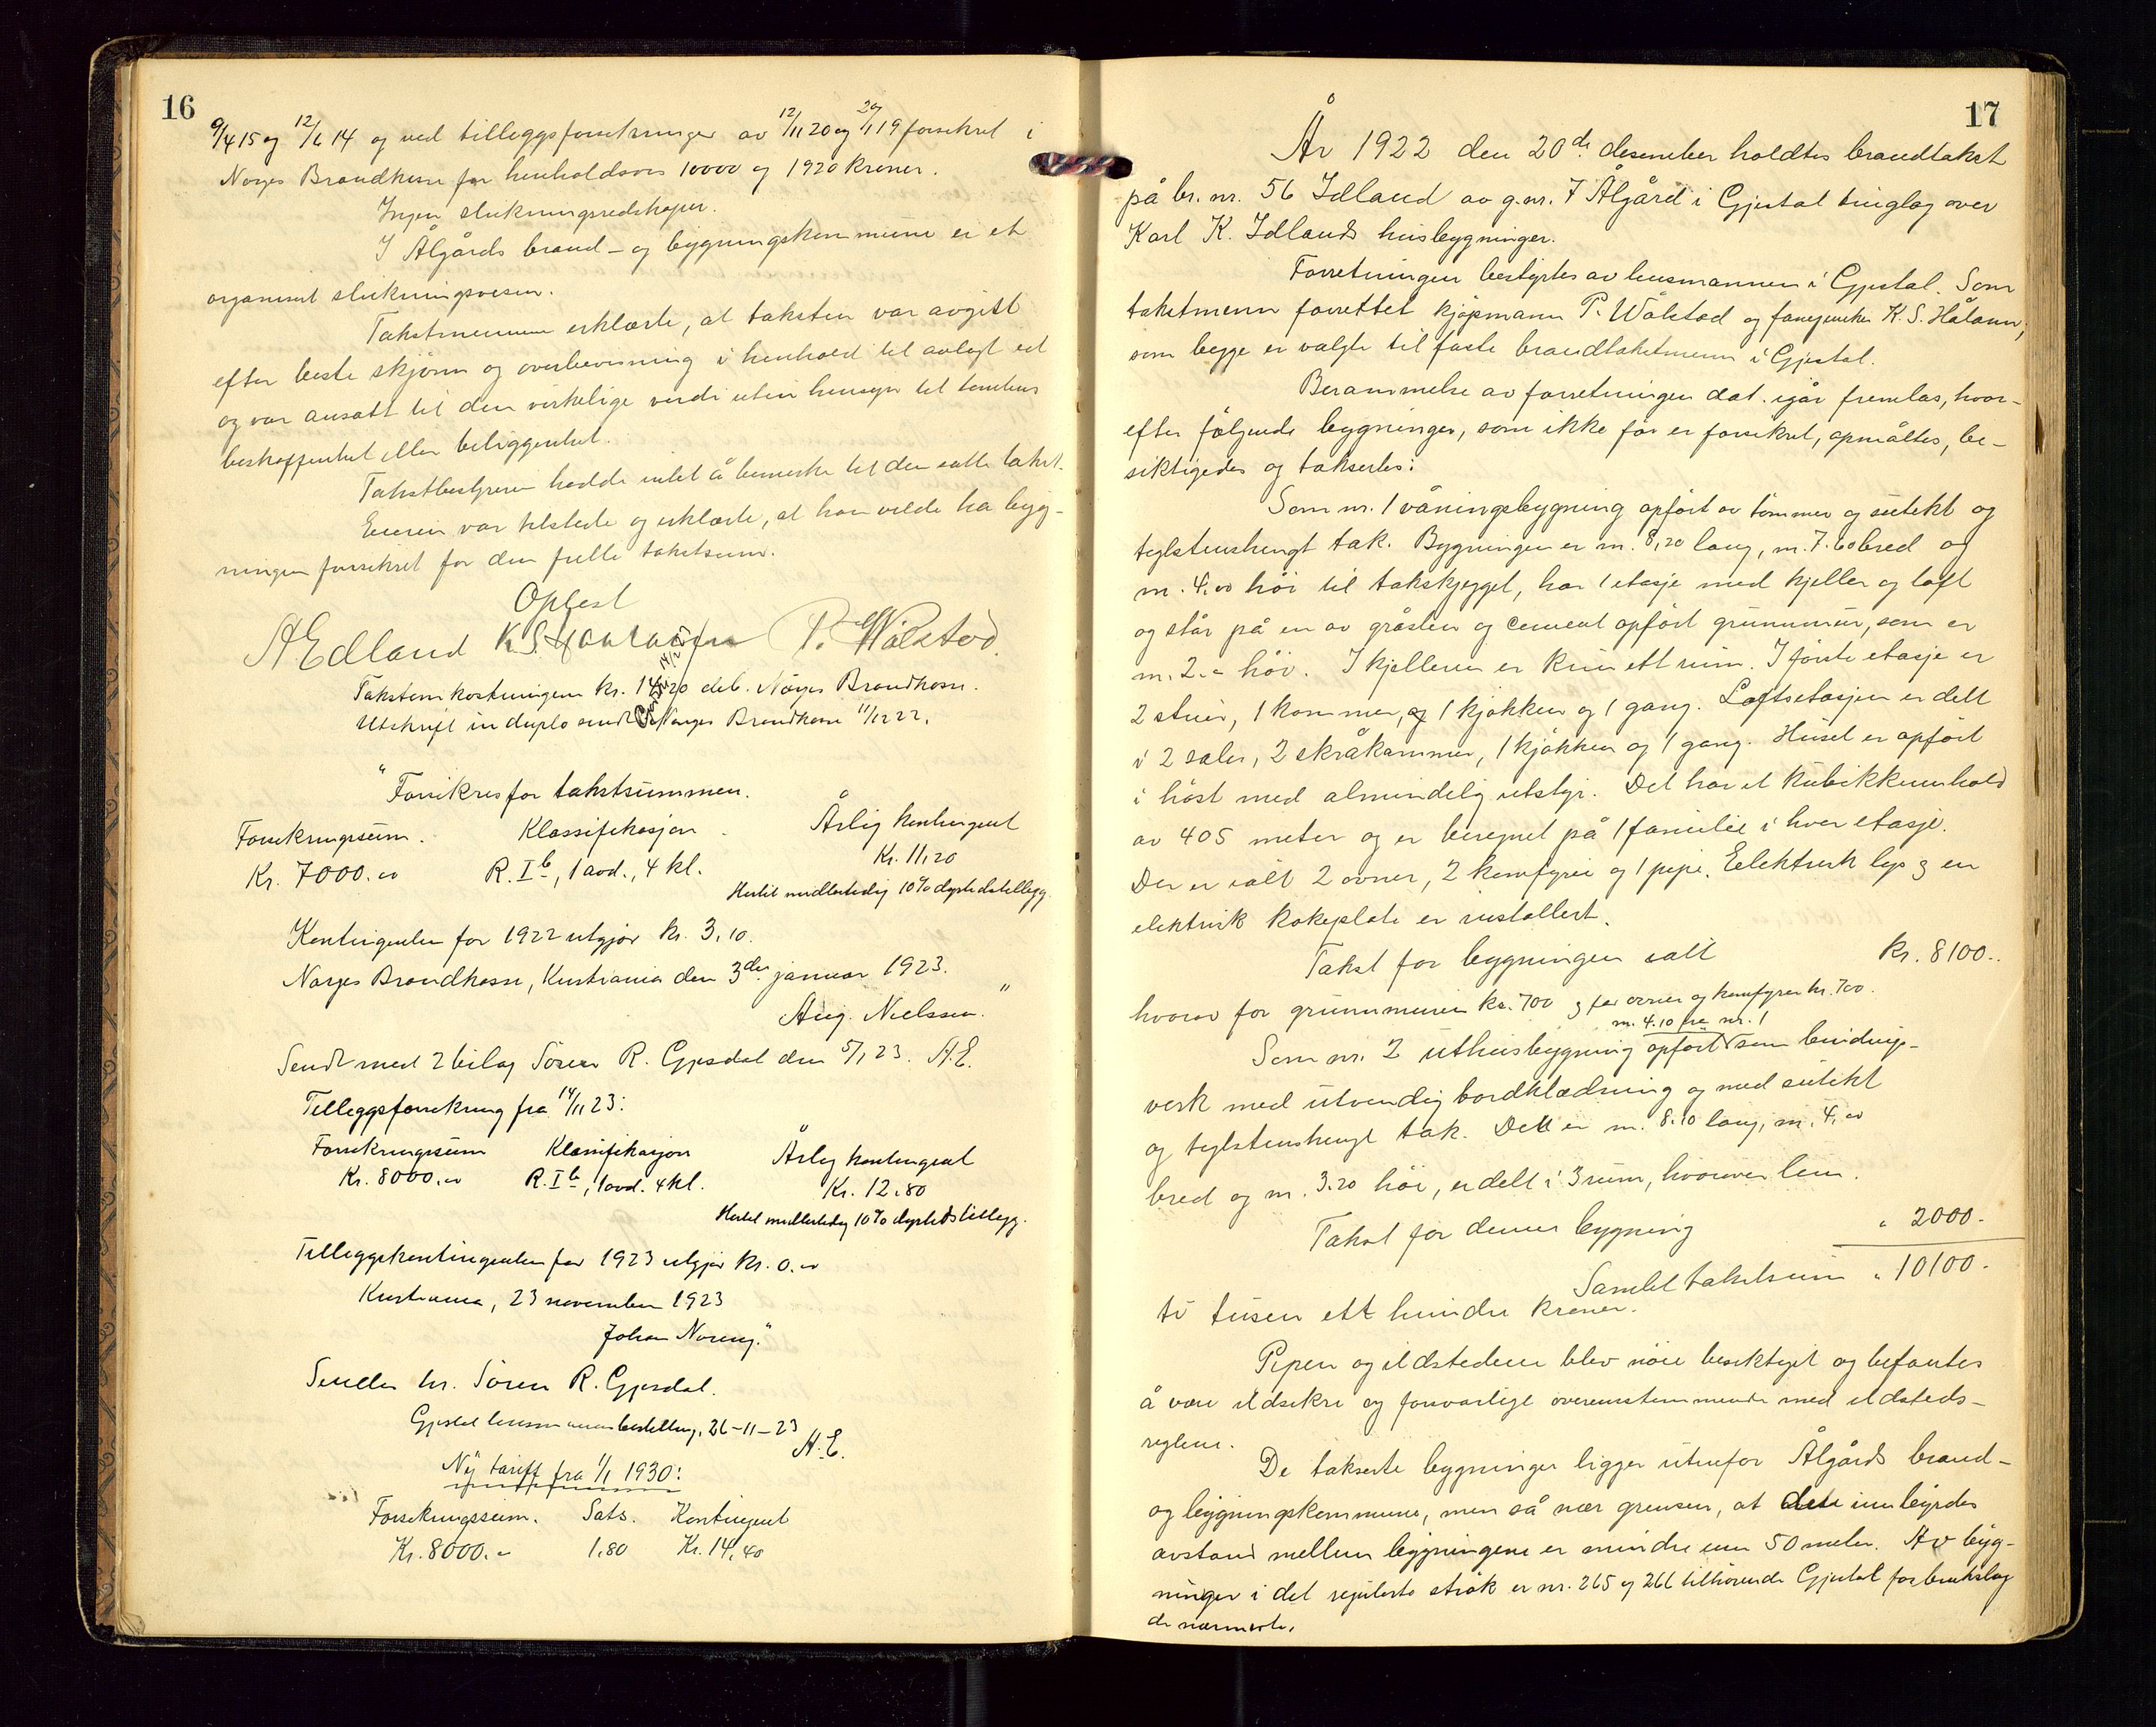 16
9/4 15 og 12/6 14 og ved tilleggsforretninger av 12/11 20 og 29/1 19 forsikret i
Norges Brandkasse for henholdsvis 10000 og 1920 kroner.
Ingen slukningsredskaper.
I Ålgårds brand- og bygningskommune er et
organisert slukningsvesen.
Takstmennene erklærte, at taksten var avgitt
efter beste skjønn og overbevisning i henhold til avlagt ed
og var ansatt til den virkelige verdi uten hensyn til tomtens
beskaffenhet eller beliggenhet.
Takstbestyreren hadde intet å bemerke til den satte takst.
Eieren var tilstede og erklærte, at han vilde ha byg-
ningen forsikret for den fulle takstsum.
Oplest
A Edland K. S. P. Wålstad.
Takstomkostningene kr. 14,20 deb. Norges Brandkasse.
Utskrift in duplo sendt Norges Brandkasse 11/12 22.
"Forsikres for takstsummen.
Forsikringssum. Klassifikasjon Årlig kontingent
Kr. 7000.00 R. I b, 1 avd., 4 kl. Kr. 11,20
Hertil midlertidig 10% dyrtidstillegg.
Kontingenten for 1922 utgjør kr. 3,10.
Norges Brandkasse, Kristiania den 3die januar 1923.
Aug. Nielssen."
Sendt med 2 bilag Sören R. Gjesdal den 5/1 23. A.E.
Tilleggsforsikring fra 14/11 23:
Forsikringssum Klassifikasjon Årlig kontingent
Kr. 8000.00 R. I b, 1 avd. 4 kl. Kr. 12.80
Hertil midlertidig 10% dyrtidstillegg.
Tilleggskontingenten for 1923 utgjør kr. 0.00
Kristiania, 23 november 1923
Johan Noreng."
Sendes hr. Sören R. Gjesdal.
Gjestal lensmannsbestilling, 26-11-23
A.E.
Ny tariff fra 1/1 1930:
Forsikringssum. Sats. Kontingent
Kr. 8000.- 1.80 Kr. 14,40
17
År 1922 den 20de desember holdtes brandtakst
på br. nr. 56 Idland av g.nr. 7 Ålgård i Gjestal tinglag over
Karl K. Idlands husbygninger.
Forretningen bestyrtes av lensmannen i Gjestal. Som
takstmenn forrettet kjøpmann P. Wålstad og K. S. Håland,
som begge er valgte til faste brandtakstmenn i Gjestal.
Berammelse av forretningen dat. igår fremlas, hvor-
efter følgende bygninger, som ikke før er forsikret, opmåltes, be-
siktigedes og taksertes:
Som nr. 1 våningsbygning opført av tømmer og sutekt og
teglstenshengt tak. Bygningen er m. 8,20 lang, m. 7.60 bred og
m. 4.00 høi til takskjegget, har 1 etasje med kjeller og loft
og står på en av gråsten og cement opført grunnmur, som er
m. 2.- høi. I kjelleren er kun ett rum. I første etasje er
2 stuer, 1 kammer, og 1 kjøkken og 1 gang. Loftsetasjen er delt
i 2 saler, 2 skråkammer, 1 kjøkken og 1 gang. Huset er opført
i høst med almindelig utstyr. Det har et kubikkinnhold
av 405 meter og er beregnet på 1 familie i hver etasje.
Der er ialt 2 ovner, 2 komfyrer og 1 pipe. Eelektrisk lys og en
elektrisk kokeplate er installert.
Takst for bygningen ialt kr. 8100..
hvorav for grunnmuren kr. 700 og for ovner og komfyrer kr. 700.
m. 4.10 fra nr. 1
Som nr. 2 uthusbygning opført som bindings-
verk med utvendig bordklædning og med sutekt
og teglstenshengt tak. Det er m. 8.10 lang, m. 4.00
bred og m. 3.20 høi, er delt i 3 rum, hvorover lem.
Takst for denne bygning " 2000.-
Samlet takstsum " 10100.-
ti tusen ett hundre kroner.
Pipen og ildstedene blev nøie besiktiget og befantes
å være ildsikre og forsvarlige overensstemmende med ildsteds-
reglene.
De takserte bygninger ligger utenfor Ålgårds brand-
og bygningskommune, men så nær grensen, at den innbyrdes
avstand mellem bygningene er mindre enn 50 meter. Av byg-
ninger i det regulerte strøk er nr. 265 og 266 tilhørende Gjestal forbrukslag
de nærmeste.